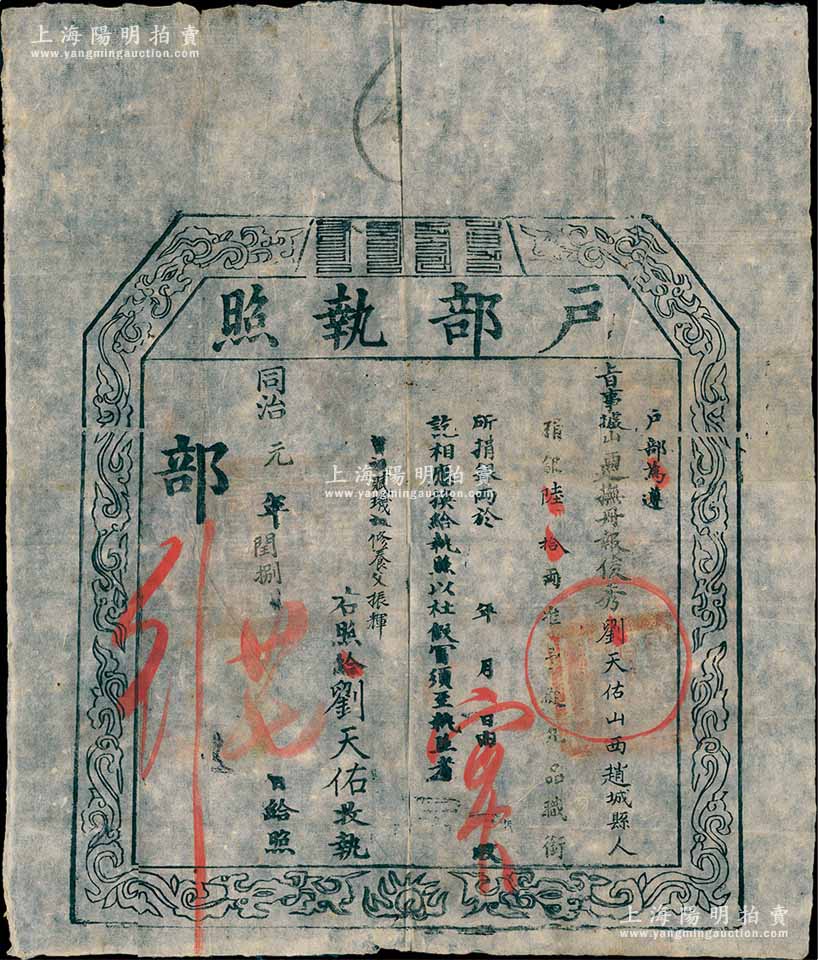 上海陽明拍賣
www.yangmingauction.com
戶部執照
戶部為遵
旨事據山 撫冊報俊秀劉天佑山西趙城縣人
捐銀陸拾兩准 品職銜
所捐銀兩於 年 月 日
訖相應換給執照以杜假冒須至執照者
修養父振輝
右照給劉天佑收執
同治元年閏捌 日給照
部
上海陽明拍賣
www.yangmingauction.com
上海陽明拍賣
www.yangmingauction.com